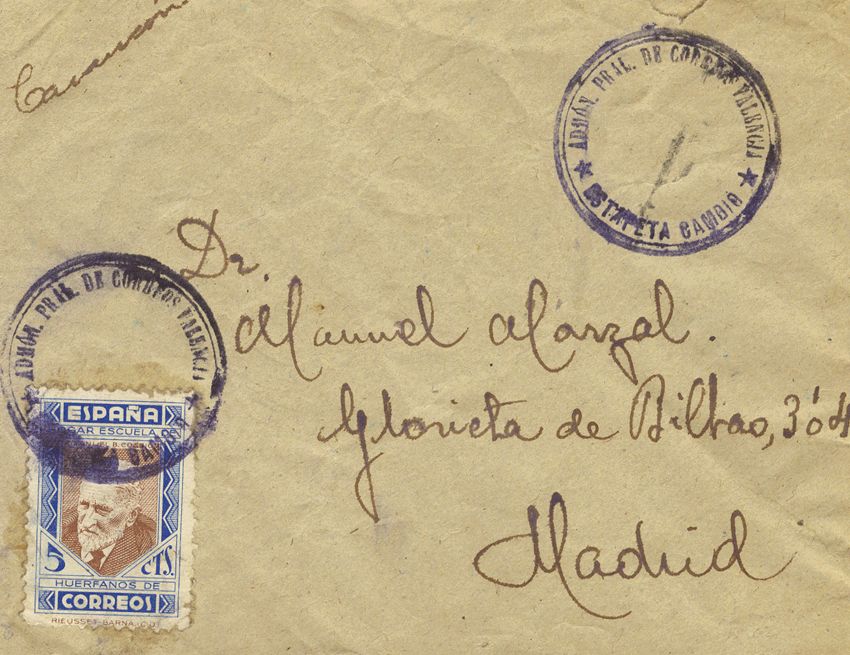 ADMÓN. PRAL. DE CORREOS VALENCIA
ESTAFETA CAMBIO
Dr.
Manuel Marzal.
Glorieta de Bilbao, 3 ó 4
Madrid
ADMÓN. PRAL. DE CORREOS VALENCIA
CAMBIO
ESPAÑA
HOGAR ESCUELA DE
5 CTS.
HUERFANOS DE
CORREOS
RIEUSSET-BARNA